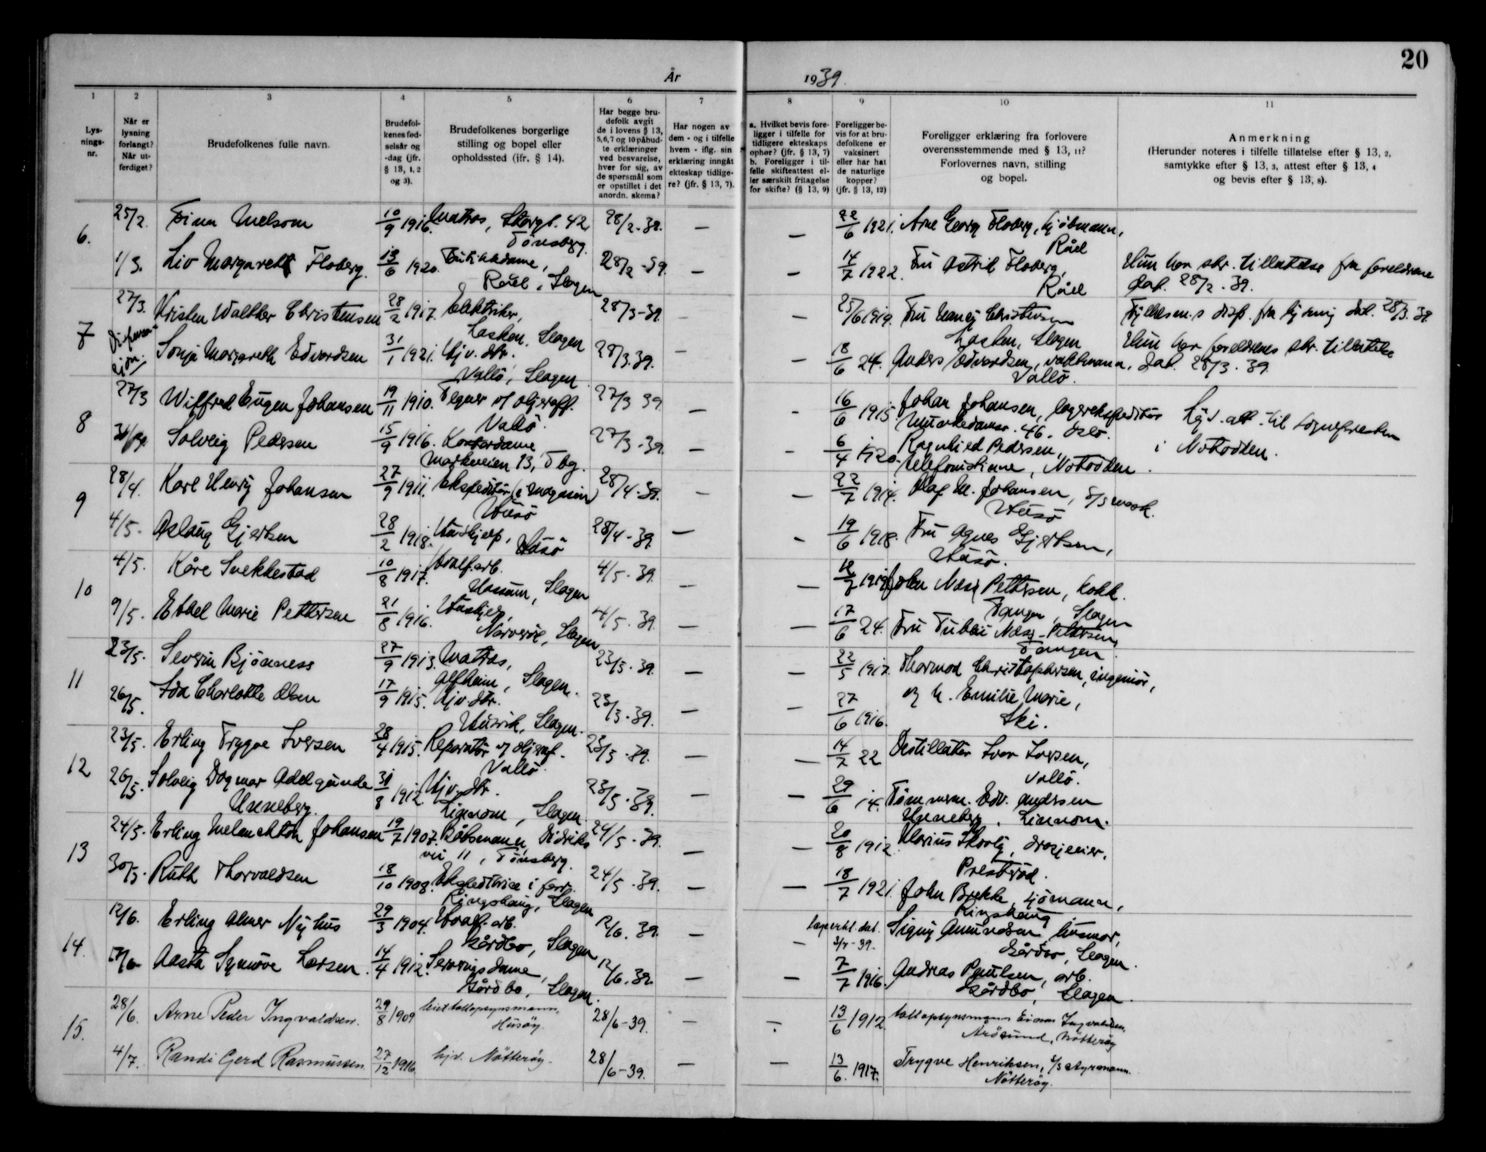 20
År 1939.
1 2 3 4 5 6 7 8 9 10 11
Lys-
nings-
nr.
Når er
lysning
forlangt?
Når ut-
ferdiget?
Brudefolkenes fulle navn.
Brudefol-
kenes fød-
selsår og
-dag (jfr.
§ 13, 1, 2
og 3).
Brudefolkenes borgerlige
stilling og bopel eller
opholdssted (ifr. § 14).
Har begge bru-
defolk avgitt
de i lovens § 13,
5,6,7 og 10 påbud-
te erklæringer
ved besvarelse,
hver for sig, av
de spørsmål som
er opstillet i det
anordn. skema?
Har nogen av
dem - og i tilfelle
hvem - iflg. sin
erklæring inngått
ekteskap tidlige-
re? (jfr. § 13, 7).
a. Hvilket bevis fore-
ligger i tilfelle for
tidligere ekteskaps
ophør? (jfr. § 13, 7)
b. Foreligger i til-
felle skifteattest el-
ler særskilt fritagelse
for skifte? (§ 13, 9)
Foreligger be-
vis for at bru-
defolkene er
vaksinert
eller har hat
de naturlige
kopper?
(jfr. § 13, 12)
Foreligger erklæring fra forlovere
overensstemmende med § 13, 11?
Forlovernes navn, stilling
og bopel.
Anmerkning
(Herunder noteres i tilfelle tillatelse efter § 13, 2,
samtykke efter § 13, 3, attest efter § 13, 4
og bevis efter § 13, 8).
6. 25/2. Finn Melsom 10/9 1916. Matros, Storgt. 42 Tønsberg. 28/2-39. — — 22/6 1921. Arne Georg Floberg, Råel
1/3. Liv Margareth Floberg. 13/6 1920. Butikkdame, Råel, Slagen 28/2-39. — — 14/7 1922. Fru Astrid Floberg, Råel Hun har skr. tillatelse fra foreldrene dat. 28/2-39.
7 27/3. Kristen Walther Christensen 28/2 1917. Elektriker, Slagen 28/3-39. — — 25/6 1919. Fru Christensen Slagen
Sonja Margareth Edvardsen 31/1 1921. Hjv. dtr. Vallø, Slagen 28/3.39. — — 18/6 24. Anders Edvardsen, Vallø. Hun har foreldrenes skr. tillatelse dat. 28/3-39
8 27/3 Wilfred Eugen Johansen 19/11 1910. Vallø. 27/3 39 — — 16/6 1915. Johan Johansen, lagerekspeditør 46. Oslo.
Solveig Pedersen 15/9 1916. Kontordame Markveien 13, Tbg. 27/3-39. — — 6/4 1920. Ragnhild Pedersen, telefonistinne, Notodden. Lysn. att. til sognepresten i Notodden.
9 28/4. Kåre Henry Johansen 27/9 1911. Ekspeditør (i magasin) Husø 28/4-39. — — 22/7 1914. Olaf M. Johansen, Husø
4/5. Aslaug Gjertsen 28/2 1918. Hushjelp, Husø 28/4-39. — — 19/6 1918. Fru Agnes Gjertsen, Husø.
10 4/5. Kåre Svekkestad 10/8 1917. Hvalfarb. Slagen 4/5-39. — — John Næss Pettersen, kokk. Tangen, Slagen
9/5. Ethel Marie Pettersen 21/8 1916. Hushjelp, Narverød, Slagen 4/5-39. — — 17/6 24. Fru Næss-Pettersen, Tangen.
11 23/5. Severin Bjønness 27/9 1913. Matros, Solheim, Slagen. 23/5-39. — — 22/5 1917. Thormod Christophersen, ingeniør,
26/5. Charlotte Olsen 17/9 1915. Hjv. dtr. Husvik, Slagen. 23/5-39. — — 27/6 1916. og h. Emilie Marie, Ski.
12 23/5. Erling Trygve Iversen 28/4 1915. Reparatør v/ Vallø. 23/5-39. — — 14/7 22 Destillatør Ivar Iversen, Vallø.
26/5. Solveig Dagmar Adelgunde Unneberg. 1912. Hjv. dtr. Linnom, Slagen. 23/5-39. — — 29/6 14. Tømmerm. Edv. Andersen Unneberg, Linnom.
13 24/5. Erling Melanchton Johansen 19/7 1907. Båtsmann, Didriks vei 11, Tønsberg. 24/5-39. — — 20/8 1912. Marius Skovly, drosjeeier. Presterød.
30/5. Ruth Thorvaldsen 18/10 1908. Ekspeditrise i forr. Ringshaug, Slagen 24/5-39. — — 18/7 1921. John Brekke, sjømann, Ringshaug
14. 12/6. Erling Elmer Nyhus 29/3 1904. Hvalf. arb. Gårdbo, Slagen 12/6. 39. — — Signy Amundsen husmor, Gårdbo, Slagen.
Aasta Synnøve Larsen. 14/4 1912. Serveringsdame, Gårdbo, Slagen. 12/6. 39. — — 7/7 1916. Andreas Paulsen, arb. Gårdbo, Slagen.
15. 28/6. Arne Peder Ingvaldsen. 29/8 1909 tolloppsynsmann, Husøy. 28/6-39. — — 13/6 1912. tolloppsynsmann Einar Ingvaldsen, Årøsund, Nøtterøy
4/7. Randi Gerd Rasmussen. 27/12 1916 hjv. Nøtterøy. 28/6-39. — — 13/6. 1917. Trygve Henriksen, h/s styrmann. Nøtterøy.